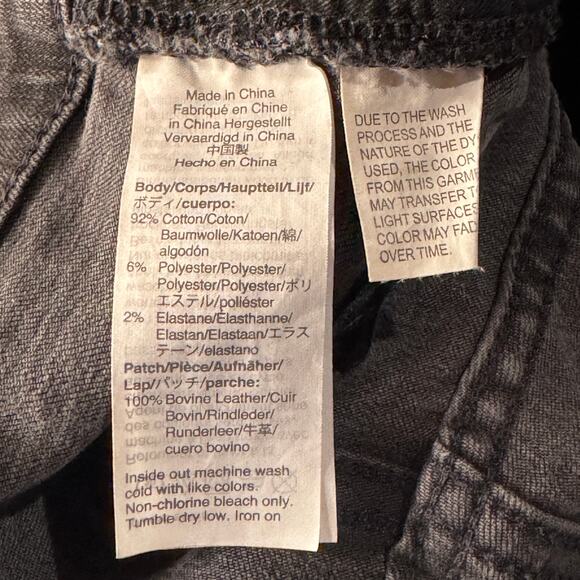 Made in China
Fabriqué en Chine
in China Hergestellt
Vervaardigd in China
中国製
Hecho en China
Body/Corps/Hauptteil/Lijf/
ボディ/cuerpo:
92% Cotton/Coton/
Baumwolle/Katoen/綿/
algodón
6% Polyester/Polyester/
Polyester/Polyester/ポリ
エステル/poliéster
2% Elastane/Elasthanne/
Elastan/Elastaan/エラス
テーン/elastano
Patch/Pièce/Aufnäher/
Lap/パッチ/parche:
100% Bovine Leather/Cuir
Bovin/Rindleder/
Runderleer/牛革/
cuero bovino
Inside out machine wash
cold with like colors.
Non-chlorine bleach only.
Tumble dry low. Iron on
DUE TO THE WASH
PROCESS AND THE
NATURE OF THE DY
USED, THE COLOR
FROM THIS GARM
MAY TRANSFER T
LIGHT SURFACES
COLOR MAY FAD
OVER TIME.